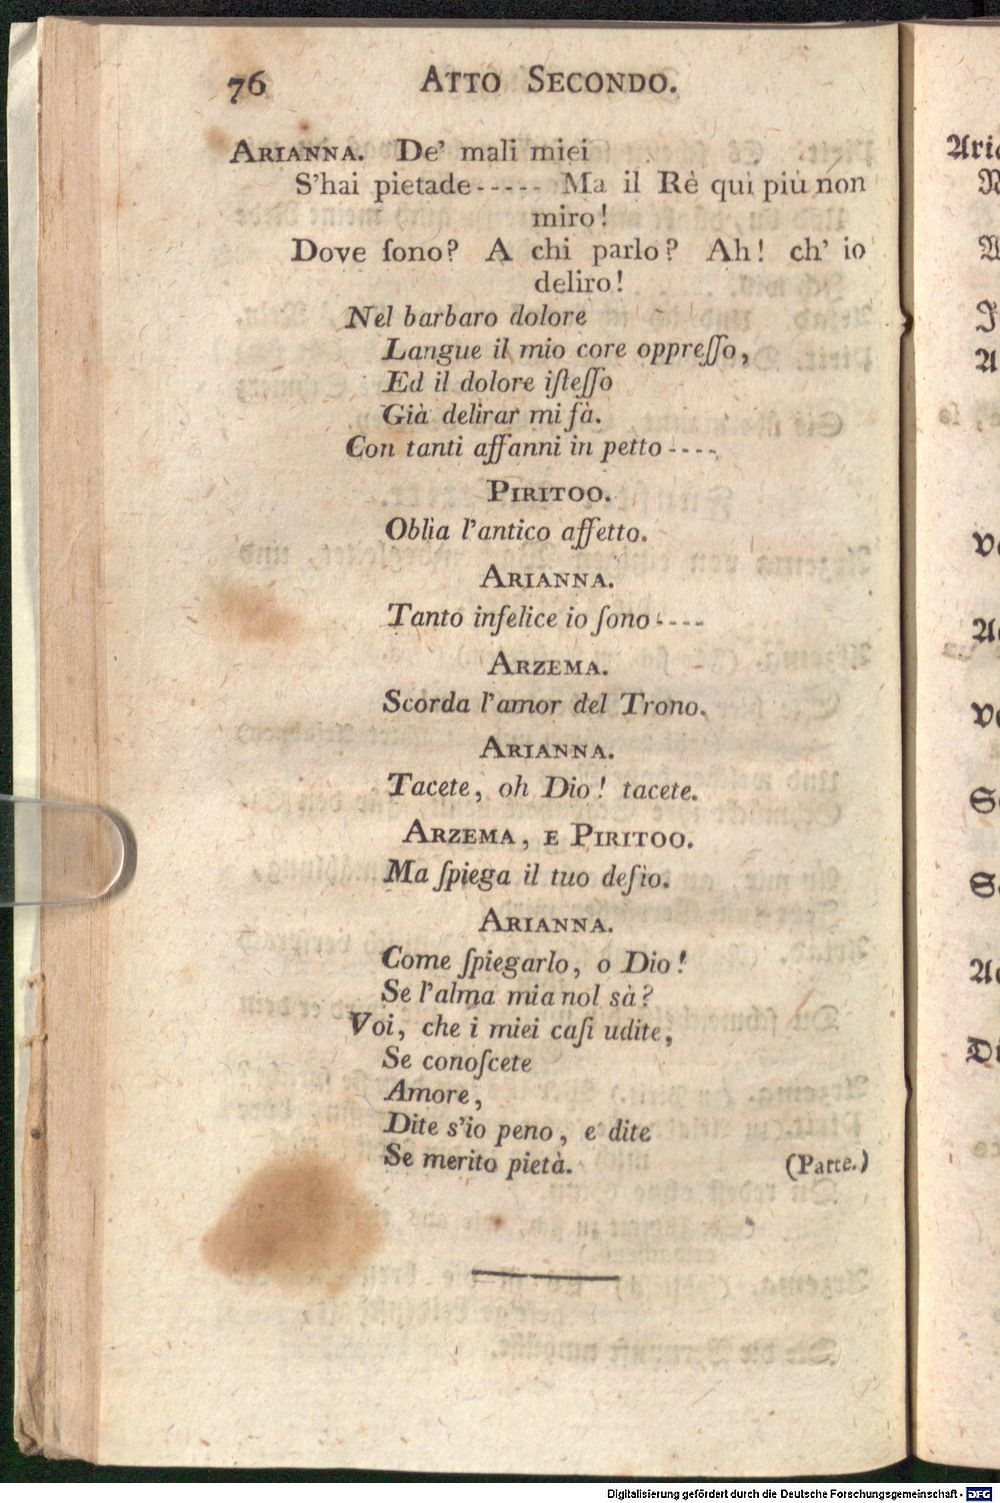 76 ATTO SECONDO.
ARIANNA. De' mali miei
S'hai pietade----- Ma il Rè qui più non
miro!
Dove ſono? A chi parlo? Ah! ch' io
deliro!
Nel barbaro dolore
Langue il mio core oppreſſo,
Ed il dolore iſteſſo
Già delirar mi fà.
Con tanti affanni in petto----
PIRITOO.
Oblia l'antico affetto.
ARIANNA.
Tanto infelice io ſono----
ARZEMA.
Scorda l'amor del Trono.
ARIANNA.
Tacete, oh Dio! tacete.
ARZEMA, E PIRITOO.
Ma ſpiega il tuo deſio.
ARIANNA.
Come ſpiegarlo, o Dio!
Se l'alma mia nol sà?
Voi, che i miei caſi udite,
Se conoſcete
Amore,
Dite s'io peno, e dite
Se merito pietà. (Parte.)
Digitalisierung gefördert durch die Deutsche Forschungsgemeinschaft - DFG